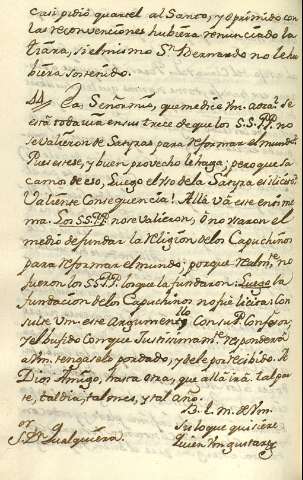 casi pidió quartel al Santo, y oprimido con
las reconvenciones hubiera renunciado la
tiara, si el mismo Sn. Bernardo no le hu
biera sostenido.
44 La Señorma, que me dice Vm. aora! se
está todavia en sus trece de que los S.S. PP. no
se valieron de Satyras para reformar el mundo.
Pues estese, y buen provecho le haga; pero que sa
camos de eso, Luego el uso de la Satyra es ilicito?
Valiente Consequencia! Allá vá ese enthime
ma. Los SS. PP. no se valieron, ô no usaron el
medio de fundar la religion de los Capuchinos
para reformar el mundo; porque realmte. no
fueron los SS. PP. los que la fundaron: Luego la
fundacion de los Capuchinos no fué licita: Con
sulte Vm. este Argumentillo con su Pe. Confesor,
y el bufido con que Justissimamte. le respondera
a Vm. tengaselo por dado, y dele por recibido. A
Dios Amigo, hasta otra, que allá irá tal par
te, tal dia, tal mes, y tal año.
B. L. m. de Vm.
Su lo que quisiere
Sr. Dn. Qualquiera.
Quien Vm. gustare